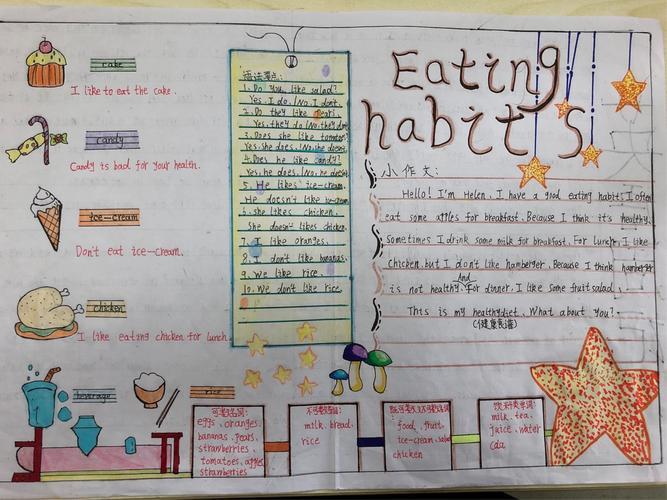 Eating
habits
cake
I like to eat the cake.
candy
Candy is bad for your health.
ice-cream
Don't eat ice-cream.
chicken
I like eating chicken for lunch.
beverage
rice
语法考点:
1. Do you like salad?
Yes, I do. No, I don't.
2. Do they like pears.
Yes, they do No, they don
3. Does she like tomatoes
Yes, she does. No, she doesn't
4. Does he like candy?
Yes, he does. No, he doesn't
5. He likes ice-cream.
He doesn't like ice-cream.
6. she likes chicken.
She doesn't likes chicken.
7. I like oranges.
8. I don't like bananas.
9. We like rice.
10. We don't like rice.
小作文:
Hello! I'm Helen. I have a good eating habit. I often
eat some apples for breakfast. Because I think it's healthy.
sometimes I drink some milk for breakfast. For lunch, I like
chicken. but I don't like hamberger. Because I think hamberger
is not healthy. And For dinner. I like some fruit salad.
This is my healthy diet. What about you?
(健康食谱)
可数名词:
eggs、oranges
bananas、pears、
strawberries、
tomatoes、apples
strawberries
不可数名词:
milk、bread、
rice
既可数又不可数名词:
food、fruit、
ice-cream、salad
chicken
饮料类单词:
milk、tea、
juice、water